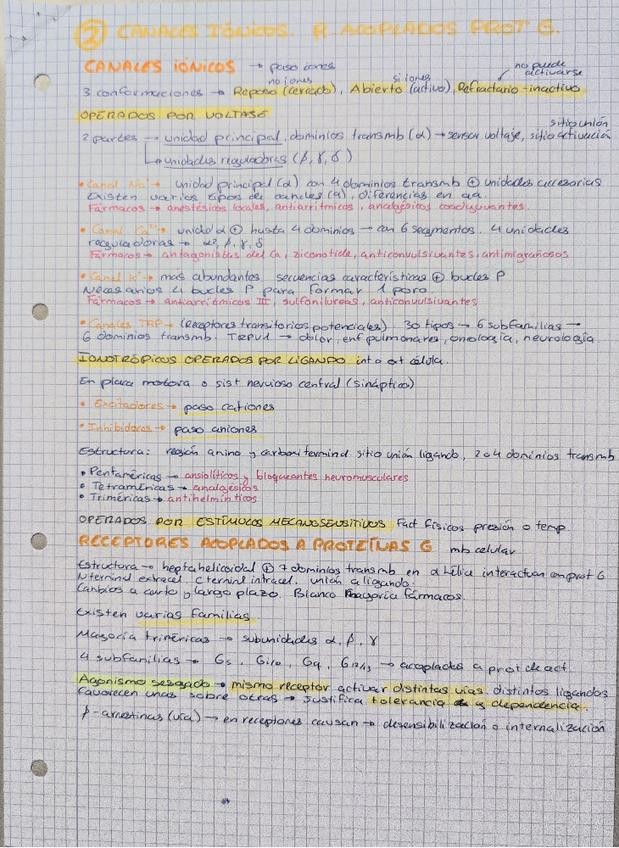 ② CANALES IÓNICOS. R ACOPLADOS PROT G.
CANALES IÓNICOS → paso iones
no puede activarse
no iones
si iones
3 conformaciones → Reposo (cerrado), Abierto (activo), Refractario-inactivo
OPERADOS POR VOLTAJE
sitio unión
2 partes → unidad principal, dominios transmb (α) → sensor voltaje, sitio activación
↳ unidades reguladoras (β, γ, δ)
• Canal Na⁺ → unidad principal (α) con 4 dominios transmb ⊕ unidades accesorias
Existen varios tipos de canales (9), diferencias en aa.
Fármacos → anestésicos locales, antiarrítmicos, analgésicos coadyuvantes.
• Canal Ca²⁺ → unidad α ⊕ hasta 4 dominios → con 6 segmentos. 4 unidades
reguladoras → α2, β, γ, δ
Fármacos → antagonistas del Ca, ziconotide, anticonvulsivantes, antimigrañosos
• Canal K⁺ → mas abundantes secuencias características ⊕ bucles P
Necesarios 4 bucles P para formar 1 poro.
Fármacos → antiarrítmicos III, sulfonilureas, anticonvulsivantes
• Canales TRP → (Receptores transitorios potenciales). 30 tipos → 6 subfamilias →
6 dominios transmb. TRPV1 → dolor, enf pulmonares, oncología, neurología
IONOTRÓPICOS OPERADOS POR LIGANDO int o ext célula.
En placa motora o sist nervioso central (sináptico)
• Excitadores → paso cationes
• Inhibidores → paso aniones
Estructura: región amino y carboxi termind sitio unión ligando, 2 o 4 dominios transmb
• Pentaméricas → ansiolíticos y bloqueantes neuromusculares
• Tetraméricas → analgésicos
• Triméricas → antihelmínticos
OPERADOS POR ESTÍMULOS MECANOSENSITIVOS Fact físicos presión o temp.
RECEPTORES ACOPLADOS A PROTEÍNAS G mb celular
Estructura → heptahelicoidal ⊕ 7 dominios transmb en α hélice interactuan con prot G
N termind extracel. C termind intracel. unión a ligando.
Cambios a corto y largo plazo. Blanco mayoría fármacos.
Existen varias familias
Mayoría triméricas → subunidades α, β, γ
4 subfamilias → Gs, Gi/o, Gq, G12/13 → acopladas a prot de act.
Agonismo sesgado → mismo receptor activar distintas vías. distintos ligandos
favorecen unas sobre otras → Justifica tolerancia y dependencia.
β-arrestinas (vía) → en receptores causan → desensibilización o internalización